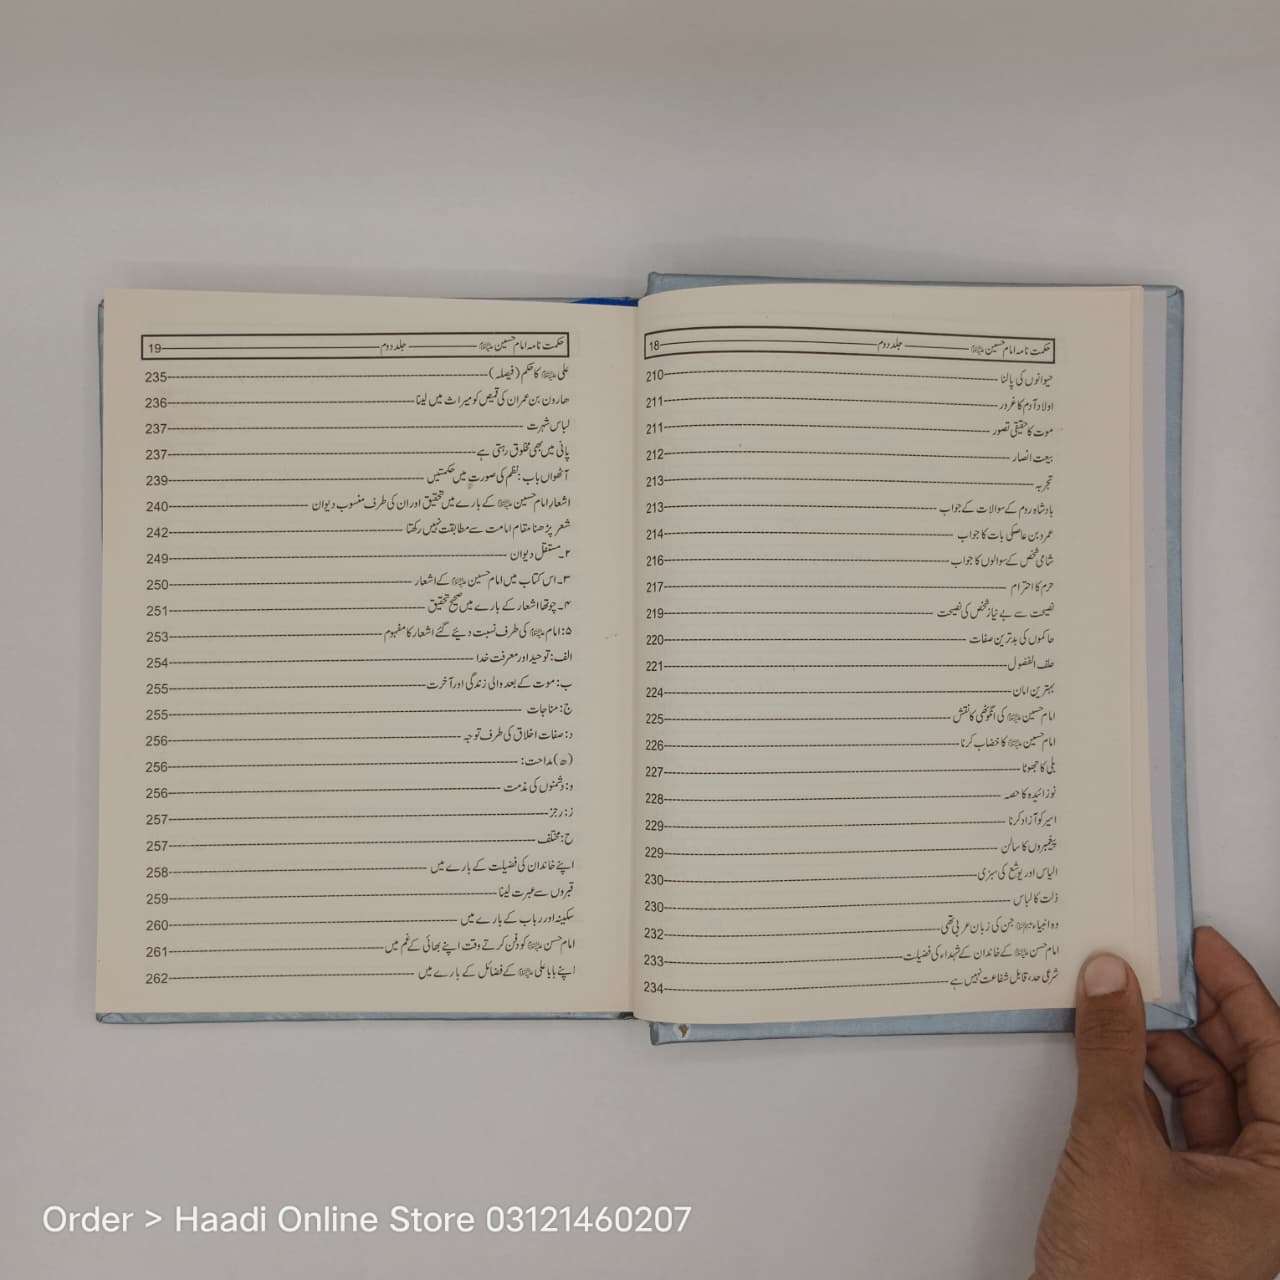 حکمت نامہ امام حسین علیہ السلام جلد دوم 18
حیوانوں کی پالنا 210
اولاد آدم کا غرور 211
موت کا حقیقی تصور 211
بیعت انصار 212
تجربہ 213
بادشاہ روم کے سوالات کے جواب 213
عمرو بن عاص کی بات کا جواب 214
شامی شخص کے سوالوں کا جواب 216
حرم کا احترام 217
نصیحت سے بے نیاز شخص کی نصیحت 219
حاکموں کی بدترین صفات 220
حلف الفضول 221
بہترین امان 224
امام حسین علیہ السلام کی انگوٹھی کا نقش 225
امام حسین علیہ السلام کا خضاب کرنا 226
بلی کا جھوٹا 227
نوزائیدہ کا حصہ 228
اسیر کو آزاد کرنا 229
پیغمبروں کا سالن 229
الیاس اور یوشع کی سبزی 230
ذلت کا لباس 230
وہ انبیاء جن کی زبان عربی تھی 232
امام حسن علیہ السلام کے خاندان کے شہداء کی فضیلت 233
شرعی حد، قابل شفاعت نہیں ہے 234
حکمت نامہ امام حسین علیہ السلام جلد دوم 19
علی علیہ السلام کا حکم (فیصلہ) 235
ھارون بن عمران کی قمیص کو میراث میں لینا 236
لباس شہرت 237
پانی میں بھی مخلوق رہتی ہے 237
آٹھواں باب: نظم کی صورت میں حکمتیں 239
اشعار امام حسین علیہ السلام کے بارے میں تحقیق اور ان کی طرف منسوب دیوان 240
شعر پڑھنا مقام امامت سے مطابقت نہیں رکھتا 242
۲۔ مستقل دیوان 249
۳۔ اس کتاب میں امام حسین علیہ السلام کے اشعار 250
۴۔ چوتھا اشعار کے بارے میں صحیح تحقیق 251
۵: امام علیہ السلام کی طرف نسبت دیئے گئے اشعار کا مفہوم 253
الف: توحید اور معرفت خدا 254
ب: موت کے بعد والی زندگی اور آخرت 255
ج: مناجات 255
د: صفات اخلاق کی طرف توجہ 256
(ھ) مداحت: 256
و: دشمنوں کی مذمت 256
ز: رجز 257
ح: مختلف 257
اپنے خاندان کی فضیلت کے بارے میں 258
قبروں سے عبرت لینا 259
سکینہ اور رباب کے بارے میں 260
امام حسن علیہ السلام کو دفن کرتے وقت اپنے بھائی کے غم میں 261
اپنے بابا علی علیہ السلام کے فضائل کے بارے میں 262
Order > Haadi Online Store 03121460207